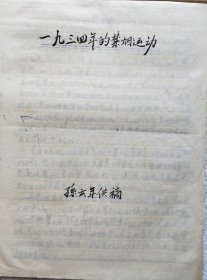 一九三四年的禁烟运动
孫云年供稿